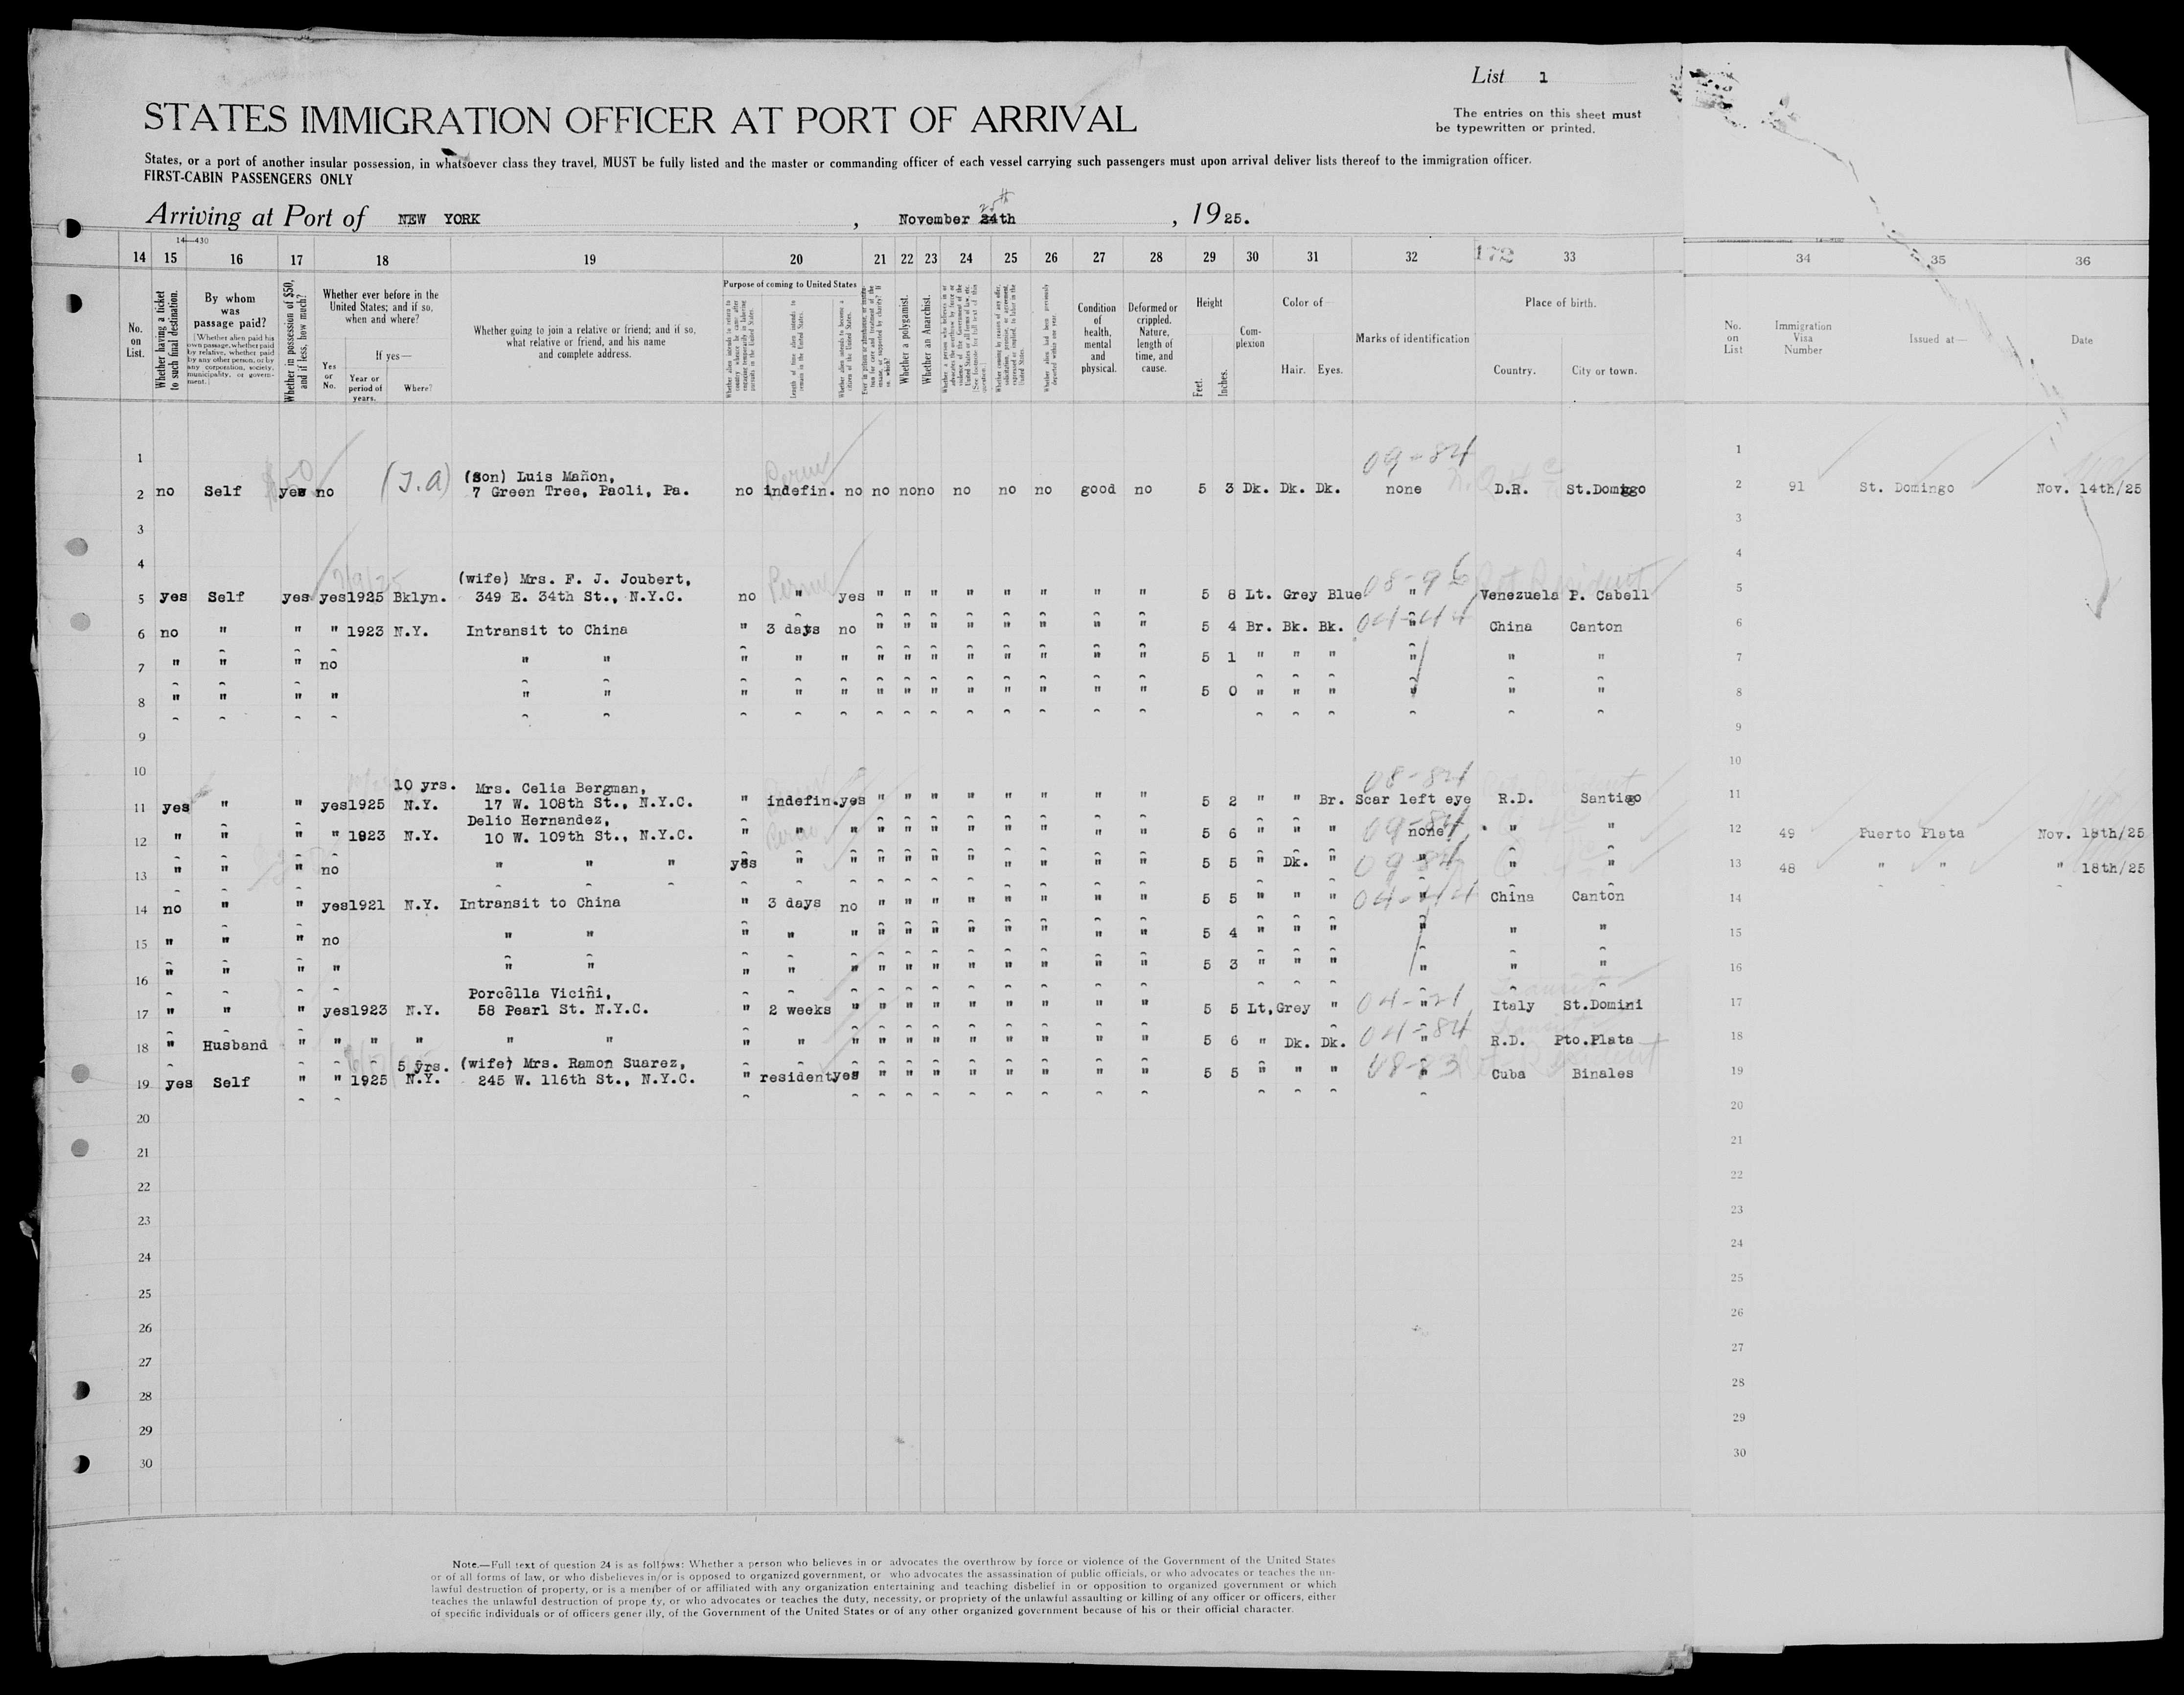 List 1
STATES IMMIGRATION OFFICER AT PORT OF ARRIVAL
The entries on this sheet must
be typewritten or printed.
States, or a port of another insular possession, in whatsoever class they travel, MUST be fully listed and the master or commanding officer of each vessel carrying such passengers must upon arrival deliver lists thereof to the immigration officer.
FIRST-CABIN PASSENGERS ONLY
25th
Arriving at Port of NEW YORK , November 24th , 1925.
14—430
14 15 16 17 18 19 20 21 22 23 24 25 26 27 28 29 30 31 32 172 33 34 35 36
No. on List.
Whether having a ticket to such final destination.
By whom was passage paid?
(Whether alien paid his own passage, whether paid by relative, whether paid by any other person, or by any corporation, society, municipality, or government.)
Whether in possession of $50, and if less, how much?
Whether ever before in the United States; and if so, when and where?
Yes or No.
If yes—
Year or period of years.
Where?
Whether going to join a relative or friend; and if so, what relative or friend, and his name and complete address.
Purpose of coming to United States
Length of time alien intends to remain in the United States.
Whether alien intends to become a citizen of the United States.
Whether a polygamist.
Whether an Anarchist.
Condition of health, mental and physical.
Deformed or crippled. Nature, length of time, and cause.
Height
Feet. Inches.
Complexion
Color of—
Hair. Eyes.
Marks of identification
Place of birth.
Country. City or town.
No. on List
Immigration Visa Number
Issued at—
Date
1 09-84 1
$50 (T.A) (Son) Luis Mañon, Perm
2 no Self yes no 7 Green Tree, Paoli, Pa. no indefin. no no no no no no no good no 5 3 Dk. Dk. Dk. none D.R. St.Domingo 2 91 St. Domingo Nov. 14th/25
3 3
4 4
(wife) Mrs. F. J. Joubert, Perm 08-96 Ret Resident
5 yes Self yes yes 1925 Bklyn. 349 E. 34th St., N.Y.C. no " yes " " " " " " " " 5 8 Lt. Grey Blue " Venezuela P. Cabell 5
6 no " " " 1923 N.Y. Intransit to China " 3 days no " " " " " " " " 5 4 Br. Bk. Bk. 04-44 " China Canton 6
7 " " " no " " " " " " " " " " " " " 5 1 " " " " " " 7
8 " " " " " " " " " " " " " " " " " 5 0 " " " " " " 8
9 9
10 10
10 yrs. Mrs. Celia Bergman, 08-84
11 yes " " yes 1925 N.Y. 17 W. 108th St., N.Y.C. " indefin. yes " " " " " " " " 5 2 " " Br. Scar left eye R.D. Santiago 11
Delio Hernandez,
12 " " " " 1923 N.Y. 10 W. 109th St., N.Y.C. " " " " " " " " " " " 5 6 " " " 09-84 none " " 12 49 Puerto Plata Nov. 18th/25
13 " " " no " " " yes " " " " " " " " " " 5 5 " Dk. " 09-84 " " " 13 48 " " " 18th/25
14 no " " yes 1921 N.Y. Intransit to China " 3 days no " " " " " " " " 5 5 " " " 04-44 " China Canton 14
15 " " " no " " " " " " " " " " " " " 5 4 " " " " " " 15
16 " " " " " " " " " " " " " " " " " 5 3 " " " " " " 16
Porcella Vicini, Transit
17 " " " yes 1923 N.Y. 58 Pearl St. N.Y.C. " 2 weeks " " " " " " " " " 5 5 Lt, Grey " 04-21 " Italy St.Domini 17
18 " Husband " " " " " " " " " " " " " " " " " 5 6 " Dk. Dk. 04-84 " R.D. Pto.Plata 18
5 yrs. (wife) Mrs. Ramon Suarez, Resident
19 yes Self " " 1925 N.Y. 245 W. 116th St., N.Y.C. " resident yes " " " " " " " " 5 5 " " " 08-83 " Cuba Binales 19
20 20
21 21
22 22
23 23
24 24
25 25
26 26
27 27
28 28
29 29
30 30
Note.—Full text of question 24 is as follows: Whether a person who believes in or advocates the overthrow by force or violence of the Government of the United States
or of all forms of law, or who disbelieves in or is opposed to organized government, or who advocates the assassination of public officials, or who advocates or teaches the un-
lawful destruction of property, or is a member of or affiliated with any organization entertaining and teaching disbelief in or opposition to organized government or which
teaches the unlawful destruction of property, or who advocates or teaches the duty, necessity, or propriety of the unlawful assaulting or killing of any officer or officers, either
of specific individuals or of officers generally, of the Government of the United States or of any other organized government because of his or their official character.